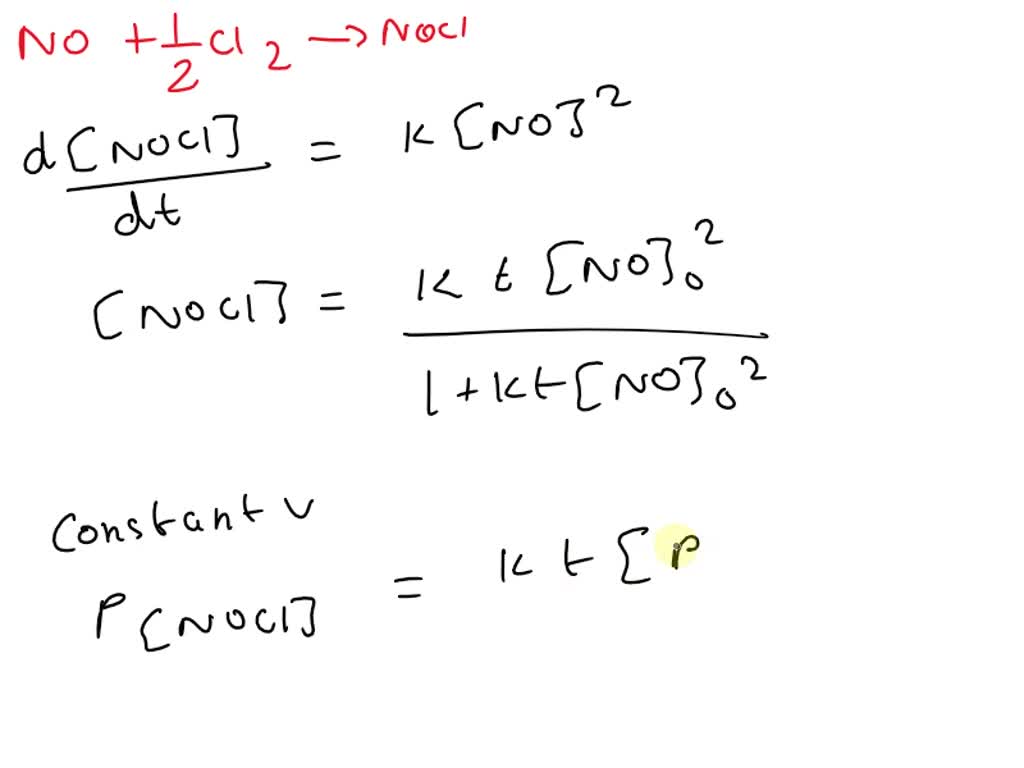 NO + 1/2 Cl2 → NOCl
d[NOCl]/dt = K[NO]²
[NOCl] = K t [NO]₀² / 1 + Kt[NO]₀²
Constant V
P[NOCl] = K t [P